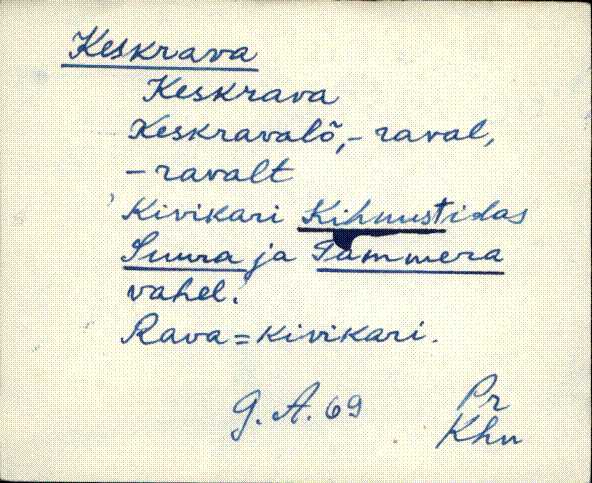 Keskrava
Keskrava
Keskravalõ, -raval,
-ravalt
Kivikari Kihnustidas
Suura ja Tammera
vahel.
Rava = kivikari.
G. A. 69
Pr
Khn